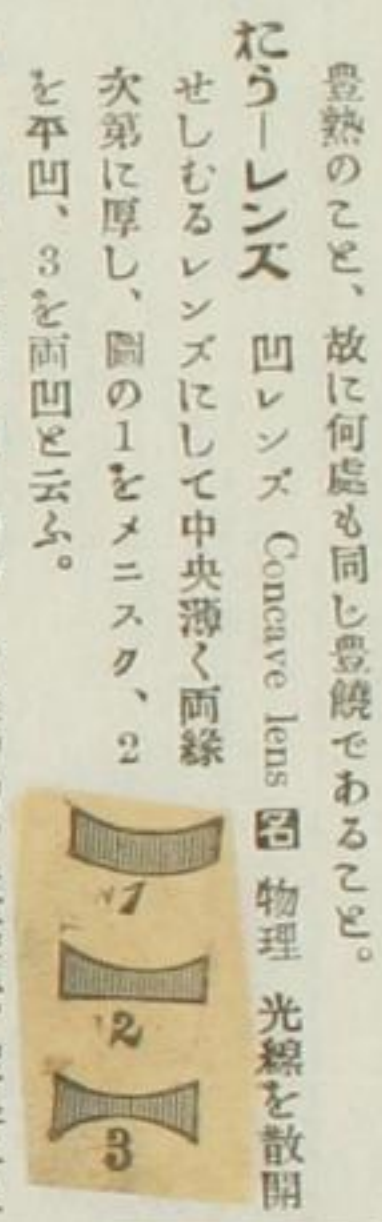 豊熟のこと、故に何處も同じ豊饒であること。
おうーレンズ 凹レンズ Concave lens 名 物理 光線を散開
せしむるレンズにして中央薄く両緣
次第に厚し、圖の1をメニスク、2
を平凹、3を両凹と云ふ。
1
2
3